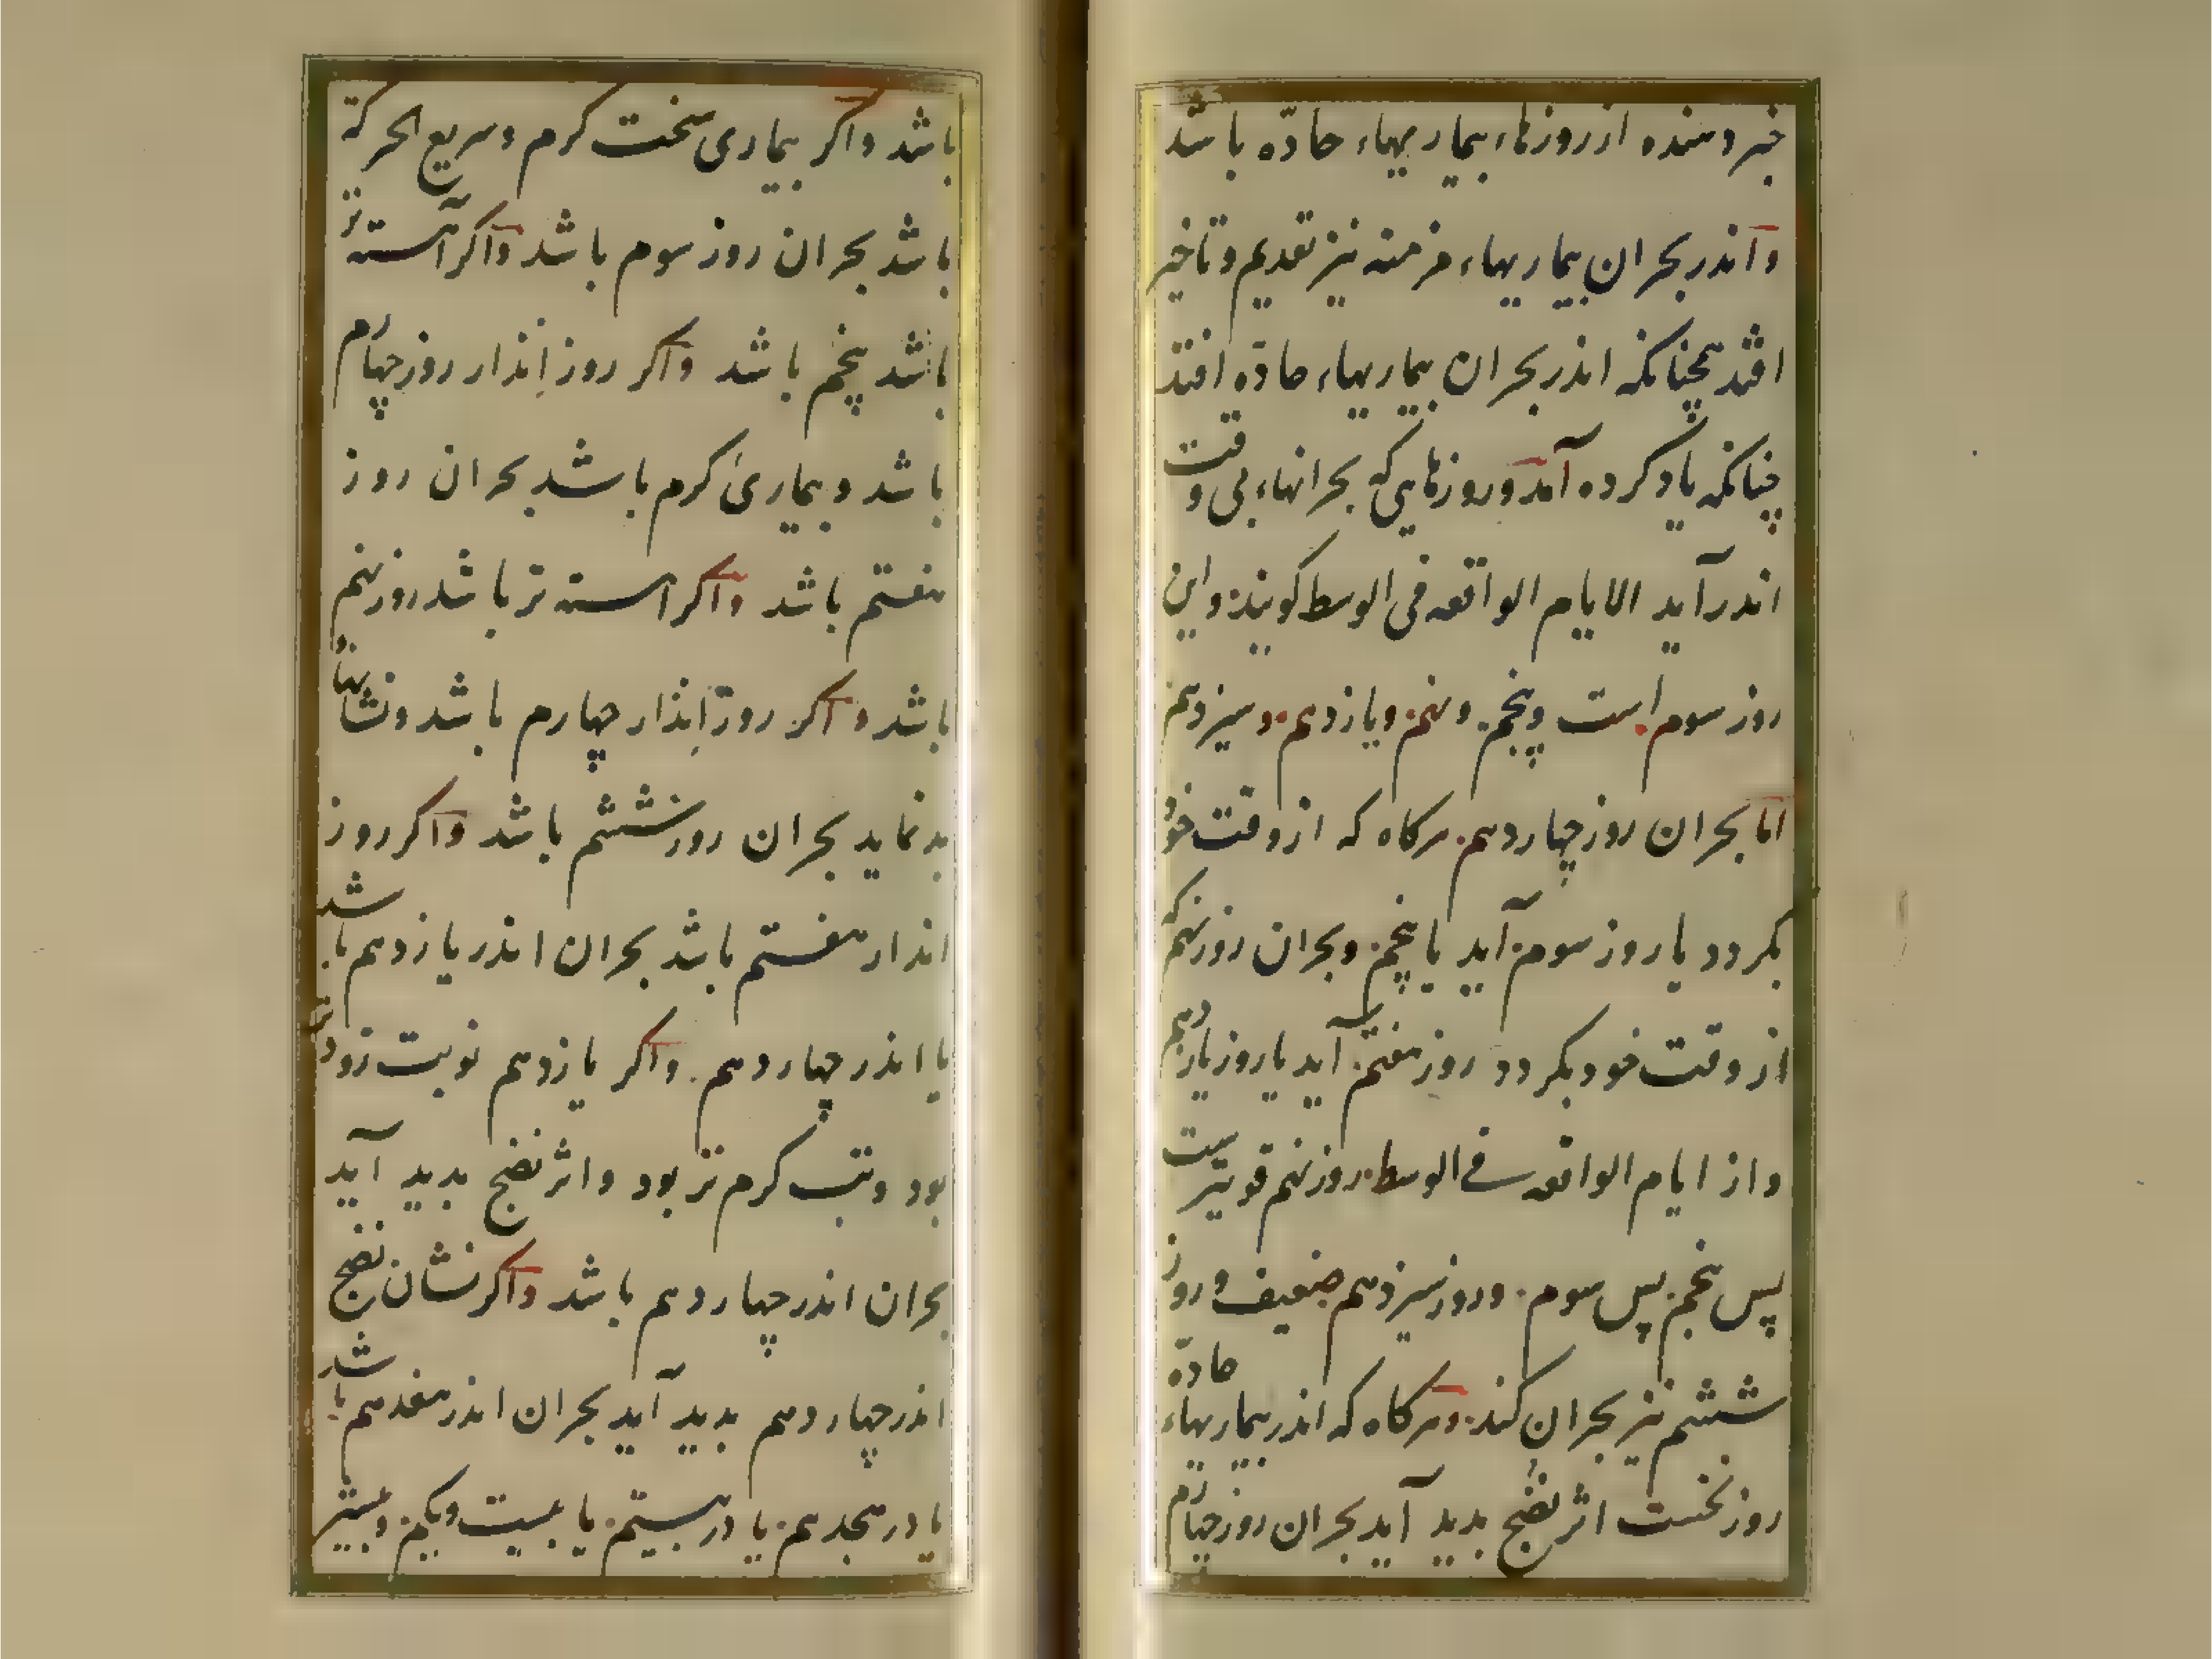 خبر دهنده از روزهاء بیماریهاء حادّه باشد
و اندر بحران بیماریهاء مزمنه نیز تقدیم و تاخیر
افتد همچنانکه اندر بحران بیماریهاء حادّه افتد
چنانکه یاد کرده آمد و روزهایی که بحرانهاء بی وقت
اندر آید الایام الواقعه فی الوسط کویند و این
روز سوم است و پنجم و نهم و یازدهم و سیزدهم
اما بحران روز چهاردهم هرکاه که از وقت خود
بکردد یا روز سوم آید یا پنجم و بحران روز نهم که
از وقت خود بکردد روز هفتم آید یا روز یازدهم
و از ایام الواقعه فی الوسط روز نهم قویترست
پس پنجم پس سوم و روز سیزدهم ضعیف و روز
ششم نیز بحران کند و هرکاه که اندر بیماریهاء حادّه
روز نخست اثر نضج بدید آید بحران روز چهارم
باشد و اکر بیماری سخت کرم و سریع الحرکة
باشد بحران روز سوم باشد و اکر آهسته تر
باشد پنجم باشد و اکر روز اِنذار روز چهارم
باشد و بیماری کرم باشد بحران روز
هفتم باشد و اکر اهسته تر باشد روز نهم
باشد و اکر روز اِنذار چهارم باشد و نشانیها
بد نماید بحران روز ششم باشد و اکر روز
انذار هفتم باشد بحران اندر یازدهم باشد
یا اندر چهاردهم و اکر یازدهم نوبت زودتر
بود و تب کرم تر بود و اثر نضج بدید آید
بحران اندر چهاردهم باشد و اکر نشان نضج
اندر چهاردهم بدید آید بحران اندر هفدهم باشد
یا در هجدهم یا در بیستم یا بیست و یکم و بیشتر